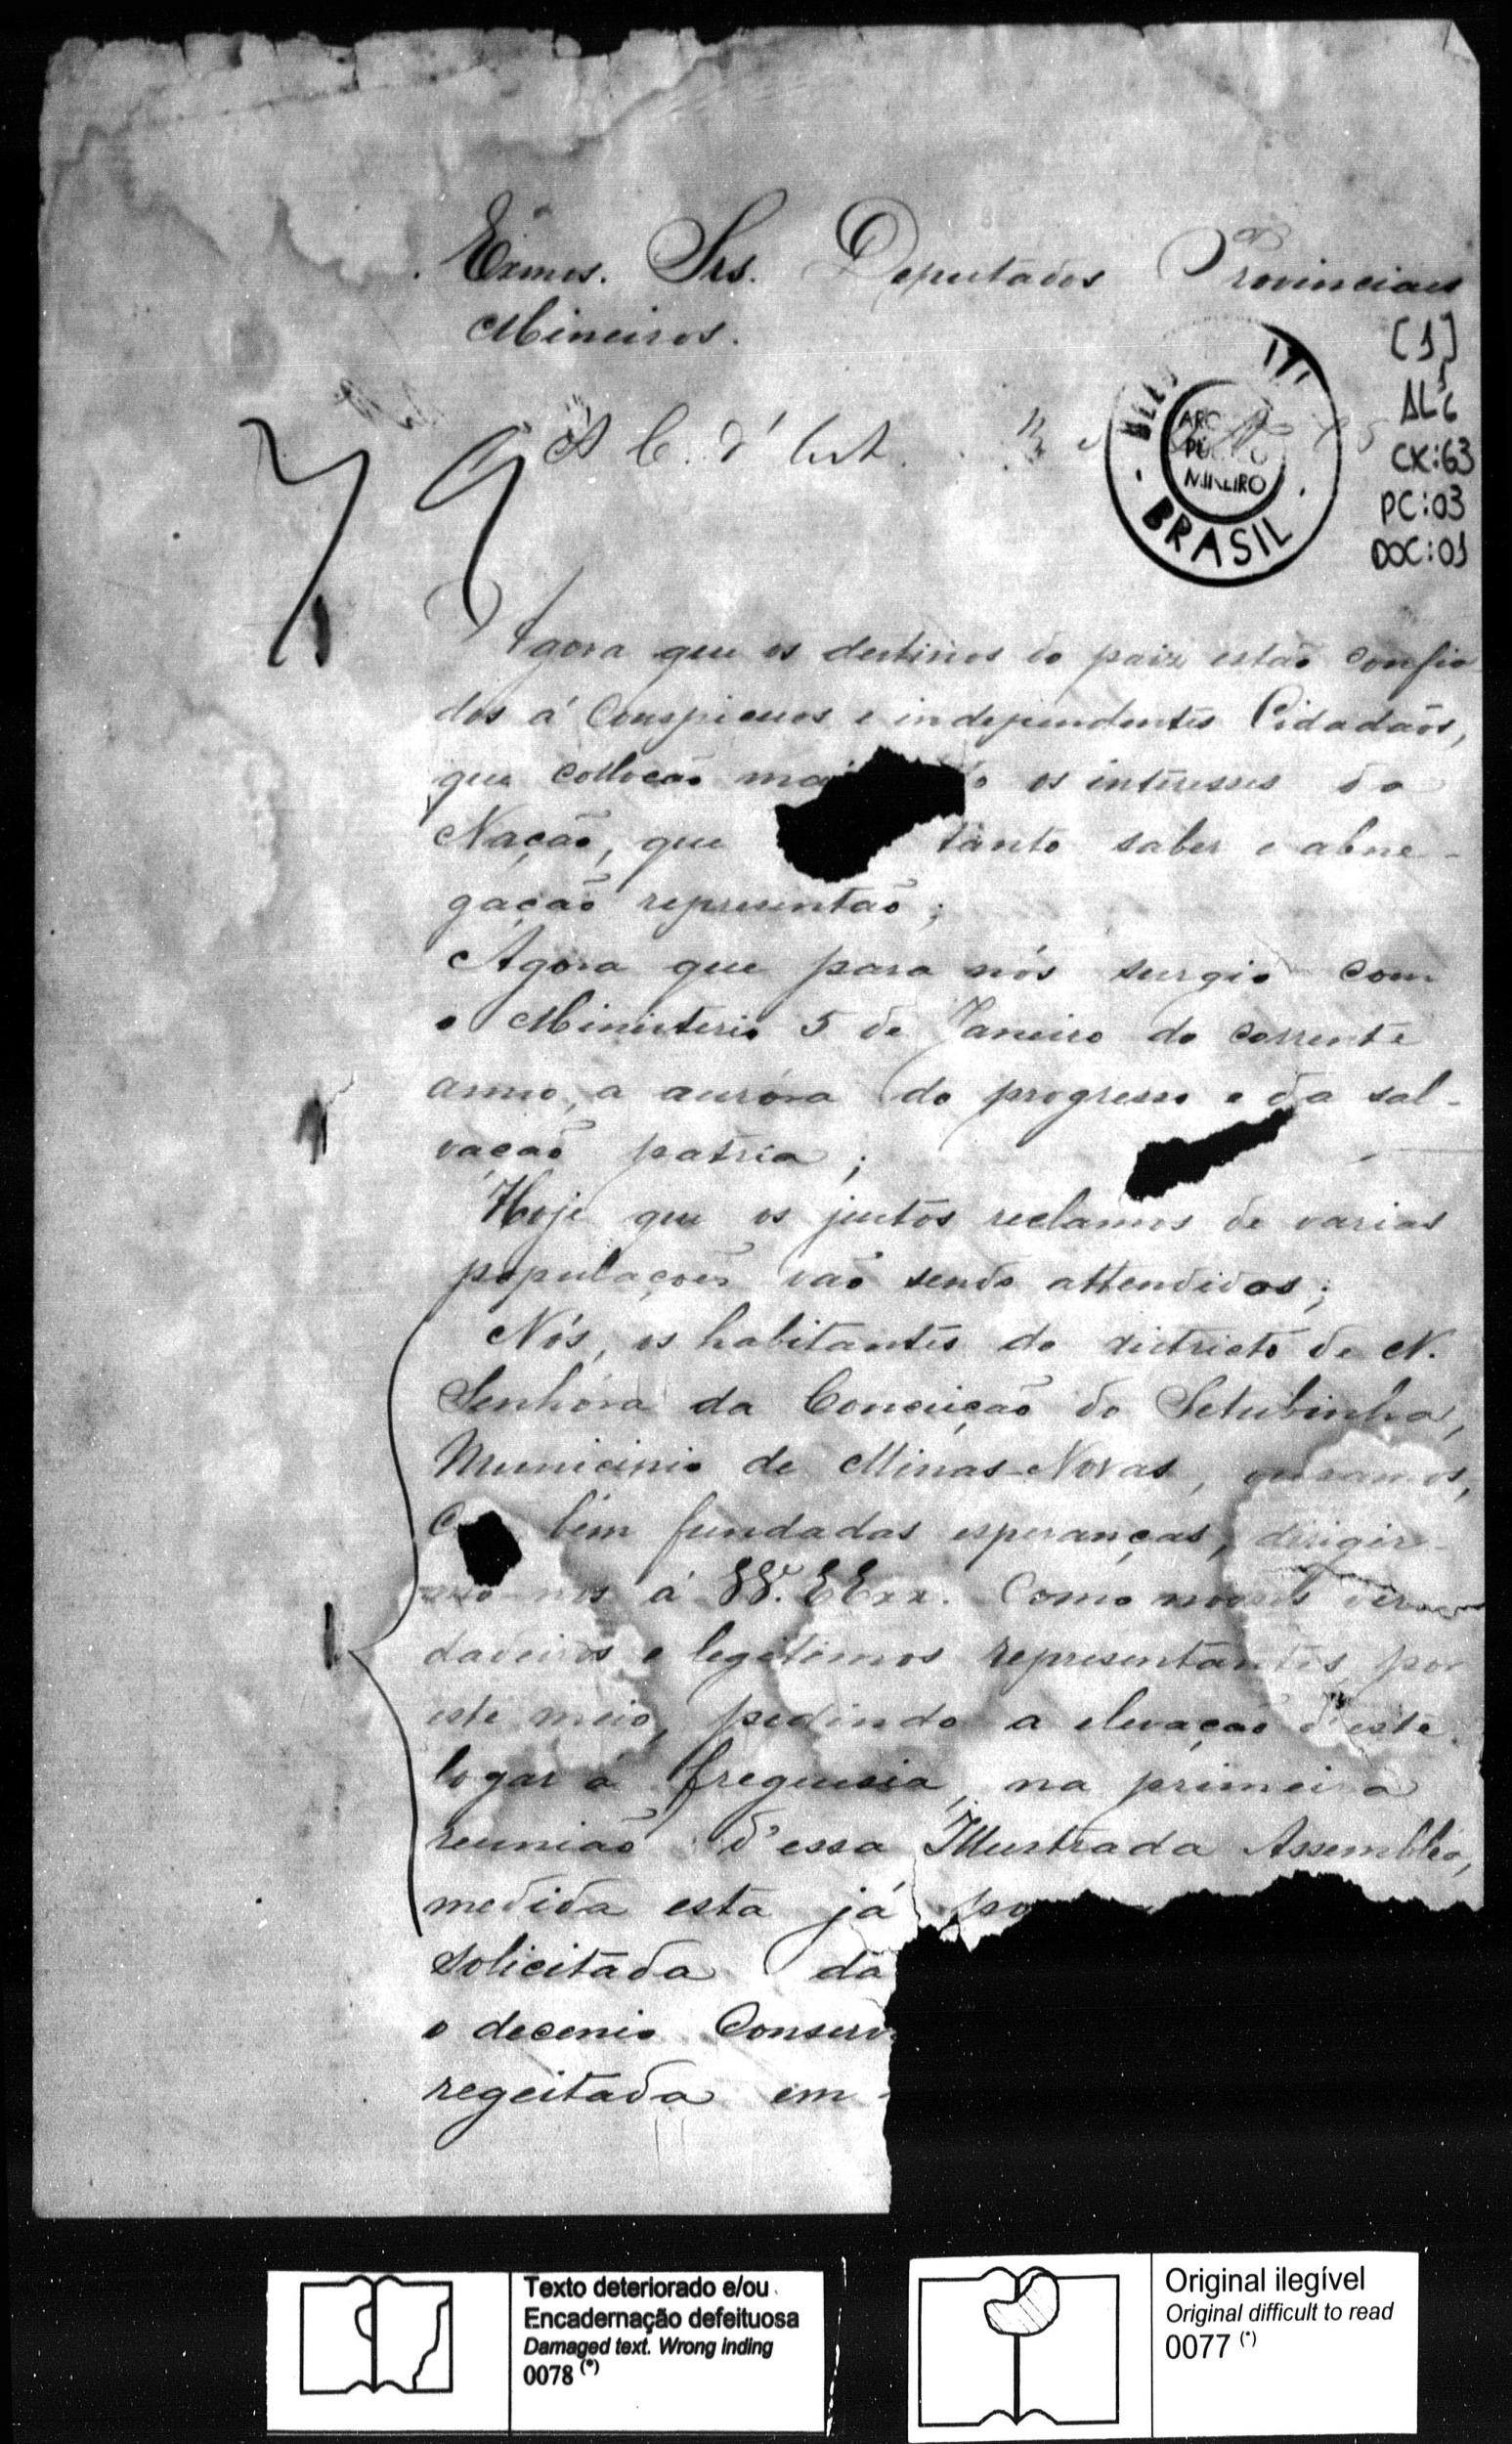 Exmos. Srs. Deputados Provinciaes
Mineiros.
[1]
AL 6
CX:63
PC:03
DOC:01
79
Á C. d'Est.
MINEIRO
BRASIL
Agora que os destinos do paiz estão confia
dos á Conspicuos e independentes Cidadãos,
que collocão os interesses da
Nação, que tanto saber e abne-
gação representão;
Agora que para nós surgio com
o Ministerio 5 de Janeiro do corrente
anno, a auróra do progresso e da sal-
vação patria;
Hoje que os justos reclamos de varias
populações vão sendo attendidos;
Nós, os habitantes do districto de N.
Senhora da Conceição do Setubinha,
Municipio de Minas-Novas, ousamos,
bem fundadas esperanças, dirigir-
mo-nos á VV. EExx. Como nossos ver
dadeiros e legitimos representantes, por
este meio, pedindo a elevação d'este
logar á freguesia, na primeira
reunião d'essa Illustrada Assembléa,
medida esta já
solicitada
o decenio
regeitada em
Texto deteriorado e/ou
Encadernação defeituosa
Damaged text. Wrong inding
0078 (*)
Original ilegível
Original difficult to read
0077 (*)